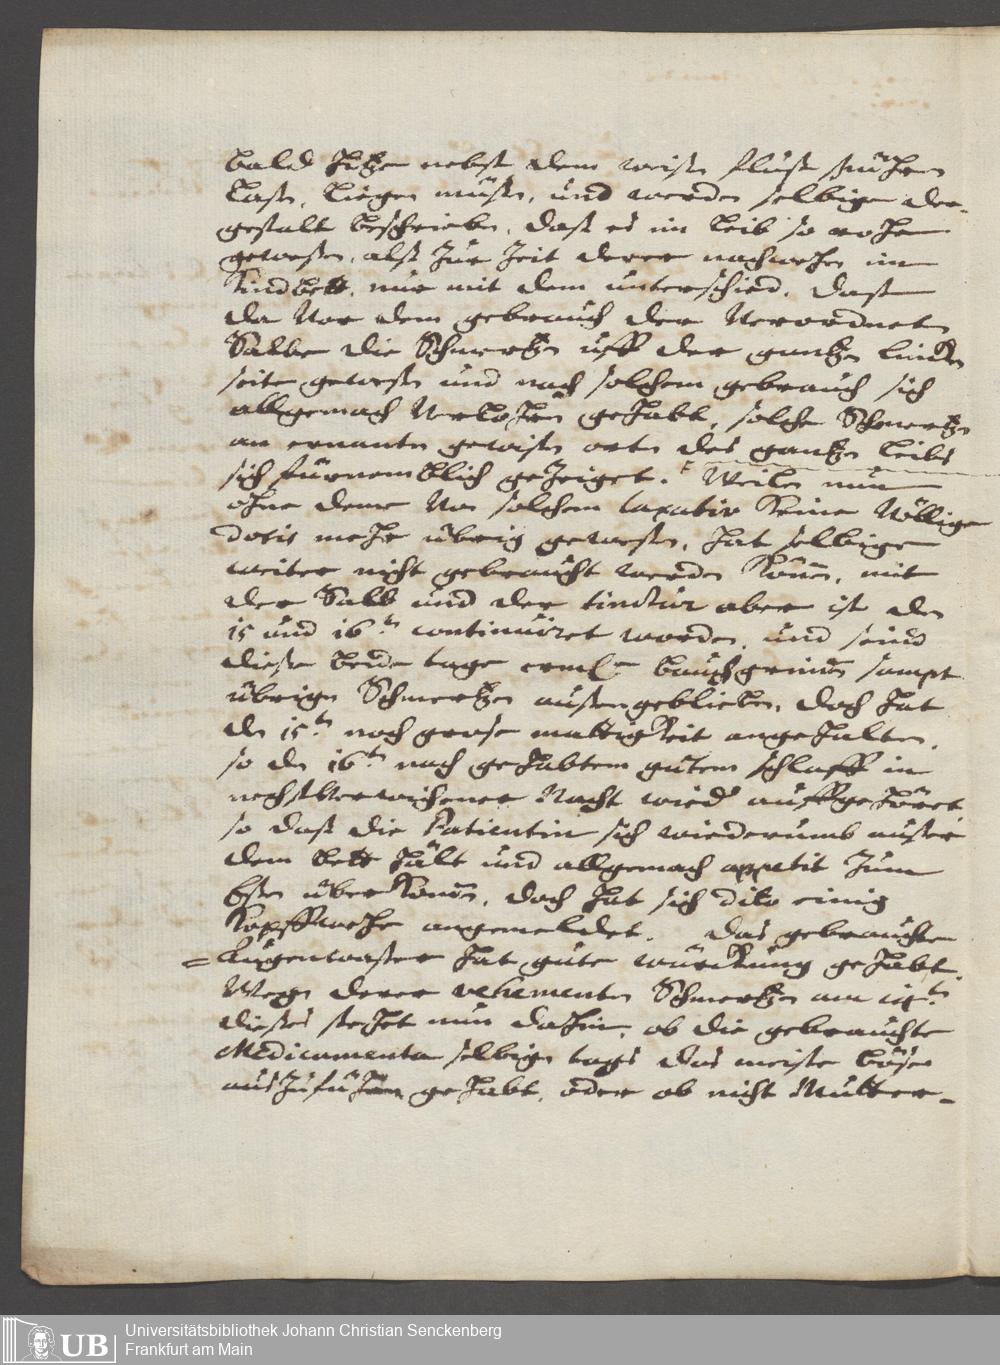 bald hitze nebst dem weisen fluß spühren
laßen, liegen müßen, und werden selbige der-
gestalt beschrieben, daß es im leib so wehe
gewesen, alß zur zeit derer nachwehen im
Kindbett, nur mit dem unterschied, daß
da vor dem gebrauch der verordneten
Salbe die Schmertzen uff der gantzen lincken
seite gewesen und nach solchem gebrauch sich
allgemach verlohren gehabt, solche Schmertzen
an ernanten gewisen orten des gantzen leibs
sich fürnemblich gezeiget. Weilen nun
ohne deme von solchem laxativ keine völlige
dosis mehr übrig gewesen, hat selbige
weiter nicht gebraucht werden können, mit
der Salb und der tinctur aber ist den
15 und 16ten continuiret worden, und seind
diese beide tage bauchgrimen sampt
übrigen Schmertzen außengeblieben, doch hat
den 15ten noch große mattigkeit angehalten,
so den 16ten nach gehabtem gutem schlaff in
nechstverwichener Nacht wieder auffgehöret
so daß die Patientin sich wiederumb außer
dem bett hält und allgemach appetit zum
Eßen überkomen, doch hat sich dito einig
Kopffwehe angemeldet. Das gebrauchte
Augenwaßer hat gute würckung gehabt.
Wegen derer vehementen Schmertzen am 14ten
dieses stehet nun dahin, ob die gebrauchte
Medicamenta selbigen tags das meiste böse
auszuführen gehabt, oder ob nicht Mutter-
UB
Universitätsbibliothek Johann Christian Senckenberg
Frankfurt am Main